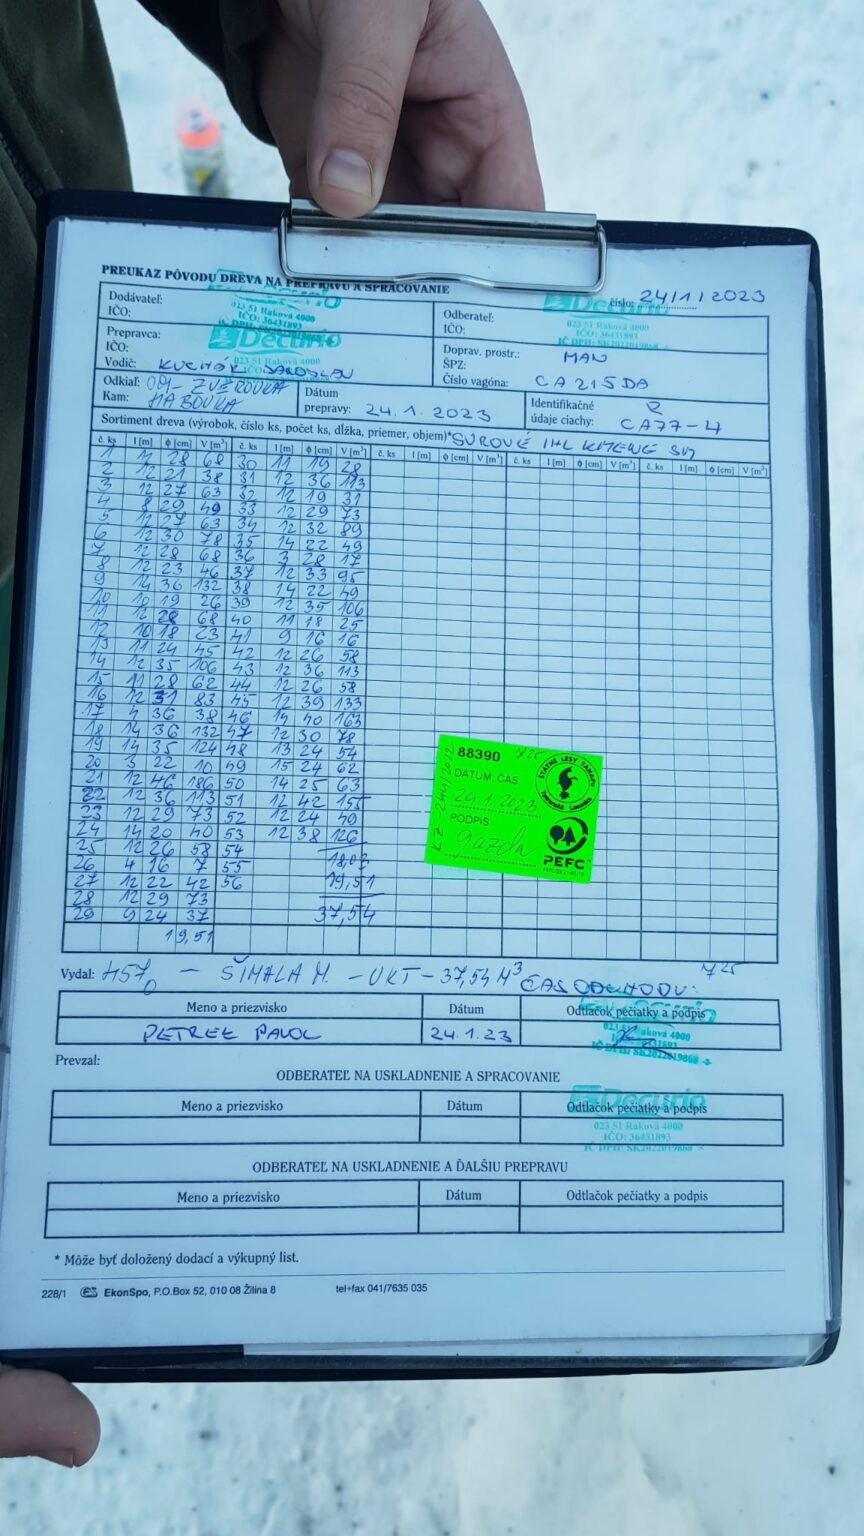 PREUKAZ PÔVODU DREVA NA PREPRAVU A SPRACOVANIE
číslo: 24/1/2023
Dodávateľ:
IČO:
023 51 Raková 4000
IČO: 36431893
Odberateľ:
IČO:
Decurio
023 51 Raková 4000
IČO: 36431893
Prepravca:
IČO:
Decurio
023 51 Raková 4000
Vodič: KUCHAR JAROSLAV
Doprav. prostr.: MAN
ŠPZ:
Číslo vagóna: CA 215DA
Odkiaľ: OM- ZVEROVKA
Kam: HABOVKA
Dátum
prepravy: 24.1.2023
Identifikačné
údaje ciachy: R
CA77-4
Sortiment dreva (výrobok, číslo ks, počet ks, dĺžka, priemer, objem)* SUROVÉ IHL KMENE SM
č. ks l [m] φ [cm] V [m³] č. ks l [m] φ [cm] V [m³] č. ks l [m] φ [cm] V [m³] č. ks l [m] φ [cm] V [m³] č. ks l [m] φ [cm] V [m³]
1 11 28 68 30 11 19 28
2 12 21 38 31 12 36 113
3 12 27 63 32 12 19 31
4 8 29 49 33 12 29 73
5 12 27 63 34 12 32 89
6 12 30 78 35 14 22 49
7 12 28 68 36 3 28 17
8 12 23 46 37 12 33 95
9 14 36 132 38 14 22 49
10 10 19 26 39 12 35 106
11 12 28 68 40 11 18 25
12 10 18 23 41 9 16 16
13 11 24 45 42 12 26 58
14 12 35 106 43 12 36 113
15 11 28 62 44 12 26 58
16 12 31 83 45 12 39 133
17 4 36 38 46 14 40 163
18 14 36 132 47 12 30 78
19 14 35 124 48 13 24 54
20 3 22 10 49 15 24 62
21 12 46 186 50 14 25 63
22 12 36 113 51 12 42 155
23 12 29 73 52 12 24 49
24 14 20 40 53 12 38 126
25 12 26 58 54
26 4 16 7 55 18,03
27 12 22 42 56 19,51
28 12 29 73
29 9 24 37 37,54
19,51
88390 725
DÁTUM, ČAS
24.1.2023
PODPIS
gazda
ŠTÁTNE LESY TANAPU
Tatranská Lomnica
PEFC
Vydal: 457 - ŠIMALA M. - UKT - 37,54 M³ ČAS ODCHODU: 7 25
Meno a priezvisko Dátum Odtlačok pečiatky a podpis
PETREK PAVOL 24.1.23
023 51 Raková 4000
IČ DPH: SK2022019868
Prevzal:
ODBERATEĽ NA USKLADNENIE A SPRACOVANIE
Meno a priezvisko Dátum Odtlačok pečiatky a podpis
Decurio
023 51 Raková 4000
IČO: 36431893
IČ DPH: SK2022019868
ODBERATEĽ NA USKLADNENIE A ĎALŠIU PREPRAVU
Meno a priezvisko Dátum Odtlačok pečiatky a podpis
* Môže byť doložený dodací a výkupný list.
228/1 EkonSpo, P.O.Box 52, 010 08 Žilina 8 tel+fax 041/7635 035